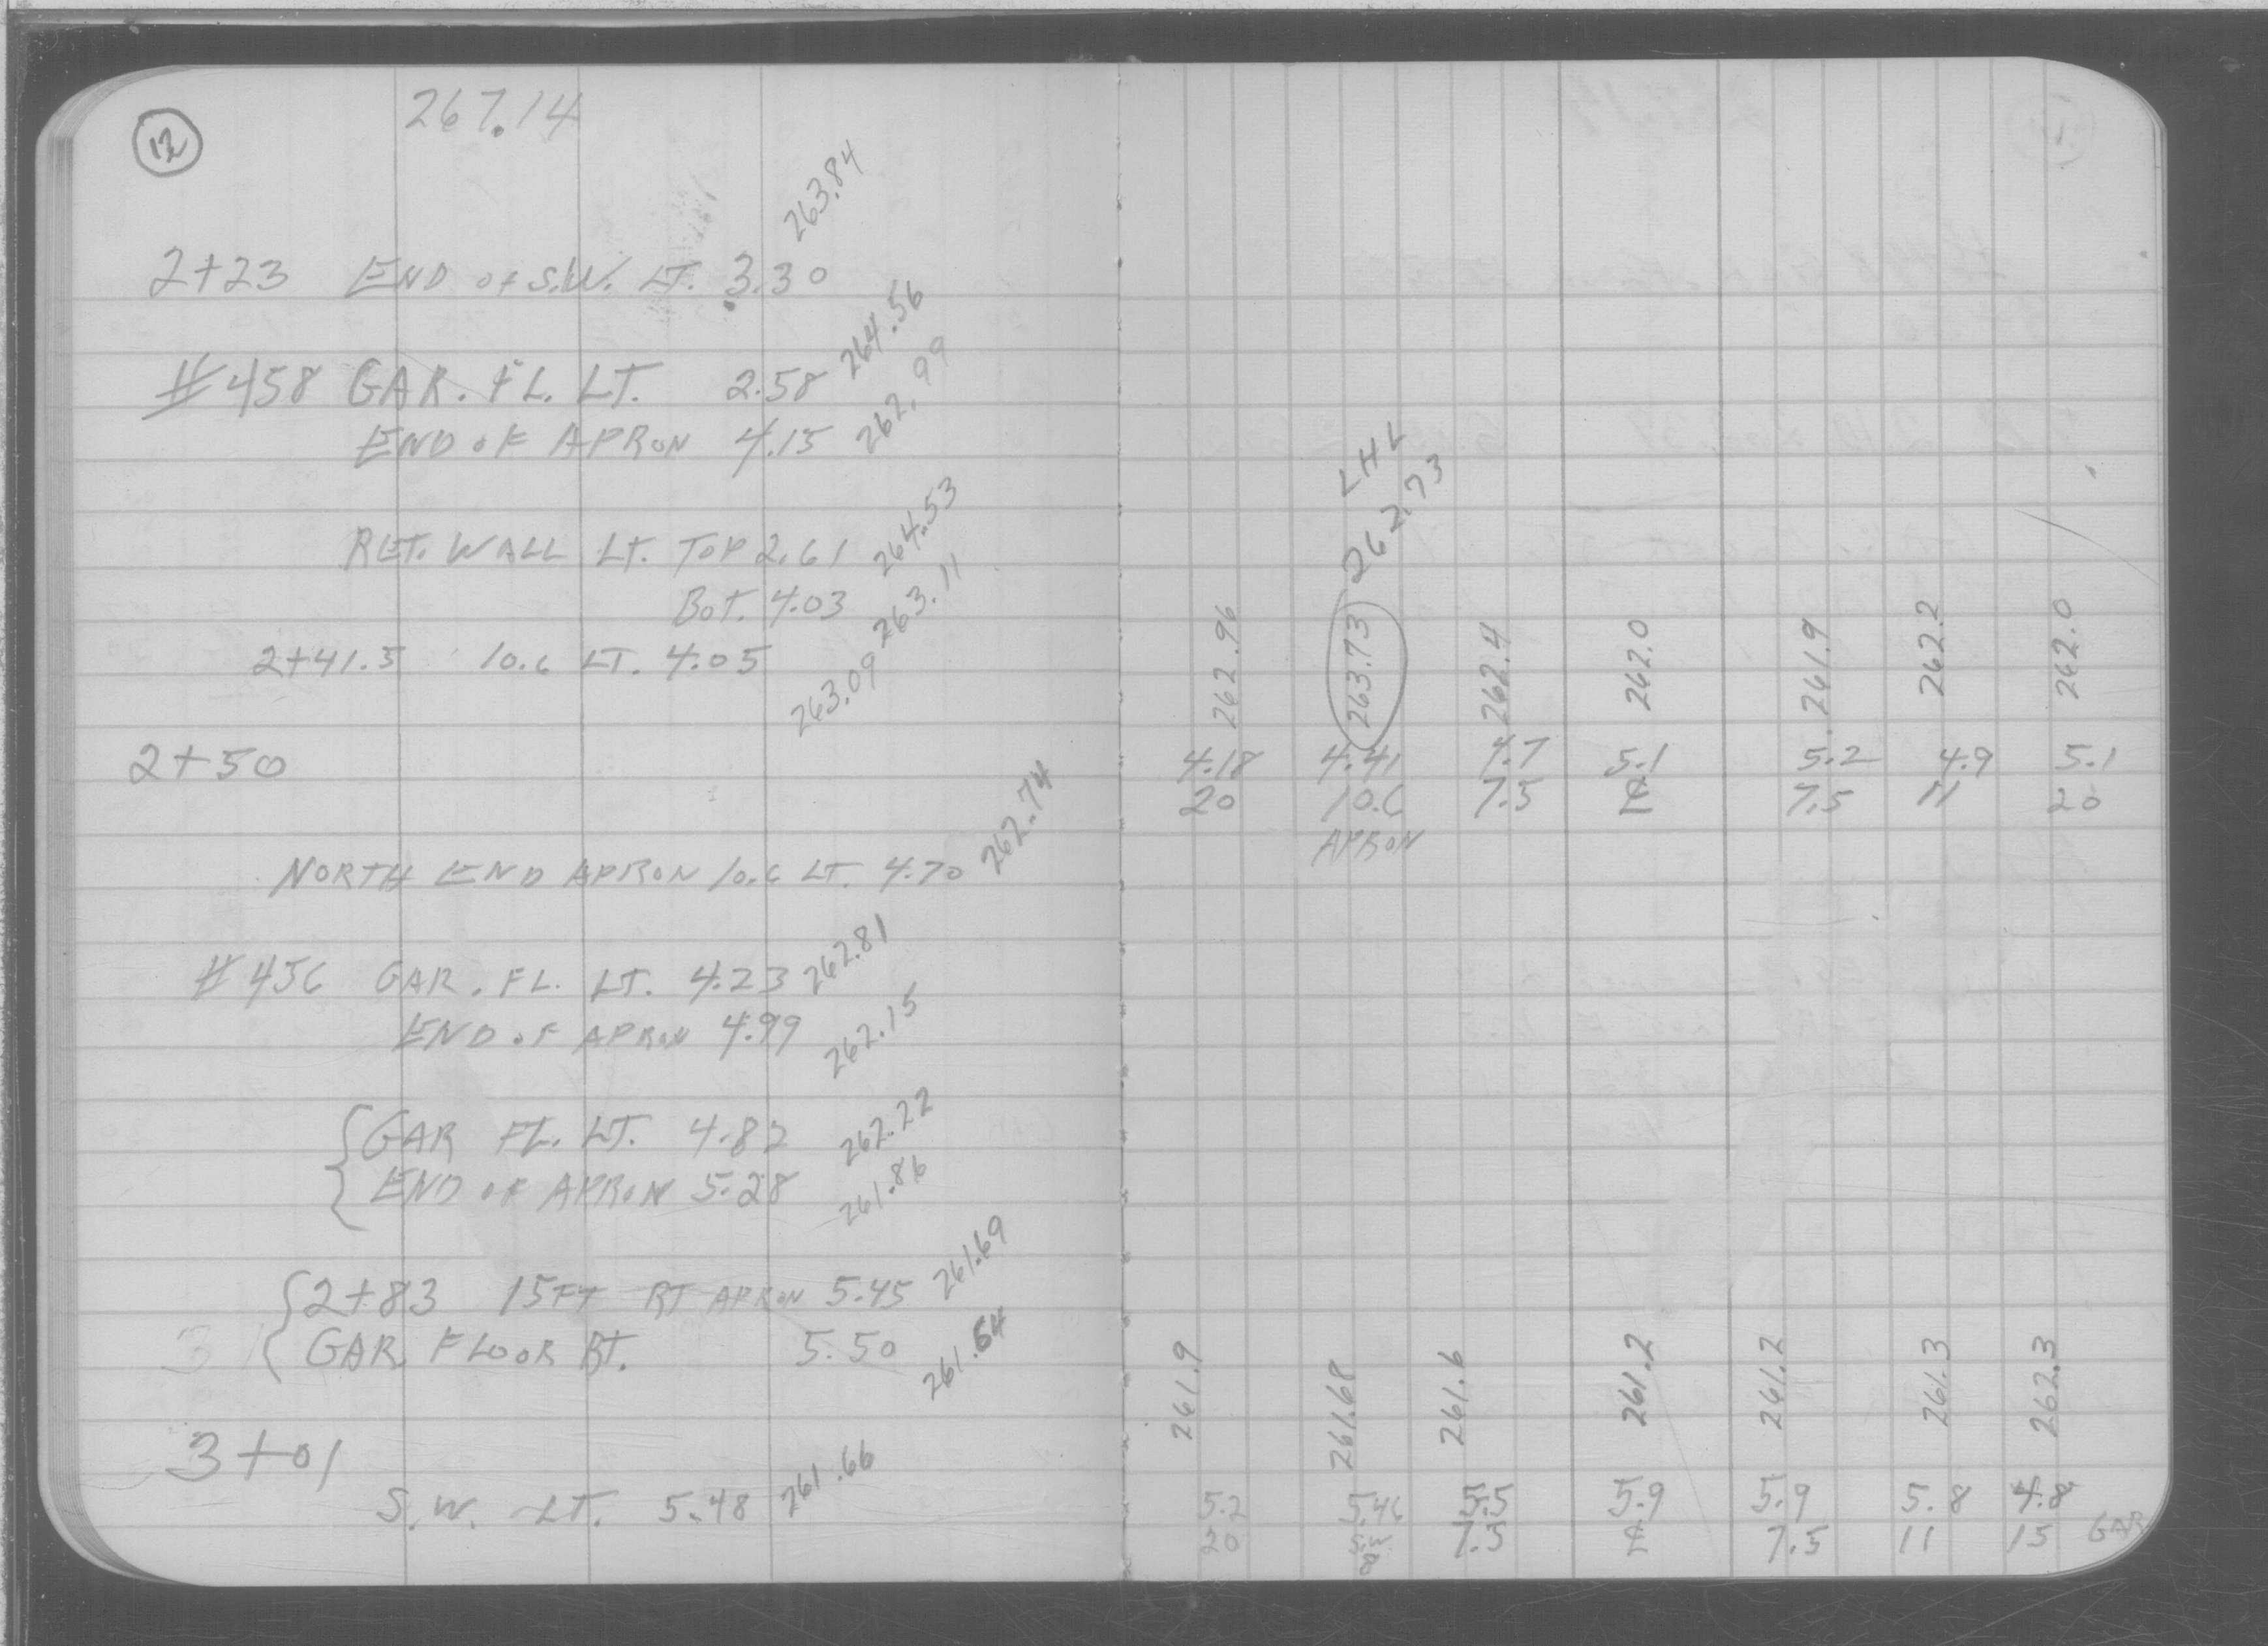 12
267.14
2+23 END OF S.W. LT. 3.30 263.84
#458 GAR. FL. LT. 2.58 264.56
END OF APRON 4.15 262.99
RET. WALL LT. TOP 2.61 264.53
BOT. 4.03 263.11
2+41.5 10.6 LT. 4.05 263.09
2+50
NORTH END APRON 10.6 LT. 4.70 262.74
#456 GAR. FL. LT. 4.23 262.81
END OF APRON 4.99 262.15
GAR FL. LT. 4.82 262.22
END OF APRON 5.28 261.86
2+83 15FT RT APRON 5.45 261.69
GAR. FLOOR RT. 5.50 261.64
3+01
S.W. LT. 5.48 261.66
LHL
262.73
262.96 263.73 262.4 262.0 261.9 262.2 262.0
4.18 4.41 4.7 5.1 5.2 4.9 5.1
20 10.6 7.5 ℄ 7.5 11 20
APRON
261.9 261.68 261.6 261.2 261.2 261.3 262.3
5.2 5.46 5.5 5.9 5.9 5.8 4.8
20 7.5 ℄ 7.5 11 15 GAR